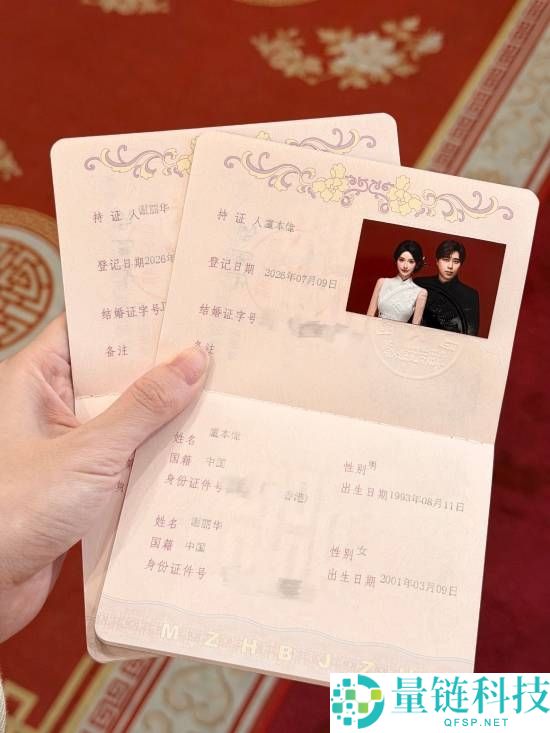 持证人 谢丽华
登记日期 2026年
结婚证字号 J
备注
持证人 董本倫
登记日期 2026年07月09日
结婚证字号
备注
姓名 董本倫
性别 男
国籍 中国
出生日期 1993年08月11日
身份证件号 香港)
姓名 谢丽华
性别 女
国籍 中国
出生日期 2001年03月09日
身份证件号
M Z H B J Z
量链科技
QFSP.NET